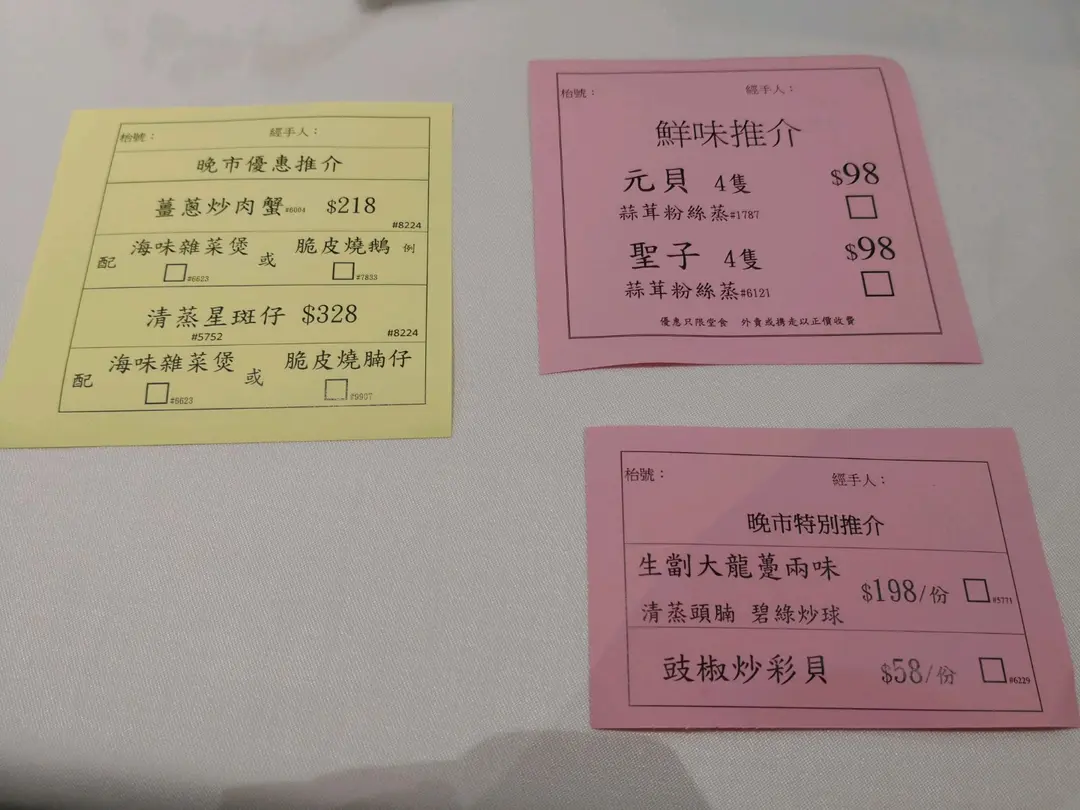 枱號： 經手人：
晚市優惠推介
薑蔥炒肉蟹#6004 $218
#8224
配 海味雜菜煲 或 脆皮燒鵝 例
#6623 #7833
清蒸星斑仔 $328
#5752 #8224
配 海味雜菜煲 或 脆皮燒腩仔
#6623 #9907
枱號： 經手人：
鮮味推介
元貝 4隻 $98
蒜茸粉絲蒸#1787
聖子 4隻 $98
蒜茸粉絲蒸#6121
優惠只限堂食 外賣或携走以正價收費
枱號： 經手人：
晚市特別推介
生劏大龍躉兩味 $198/份 #5771
清蒸頭腩 碧綠炒球
豉椒炒彩貝 $58/份 #6229